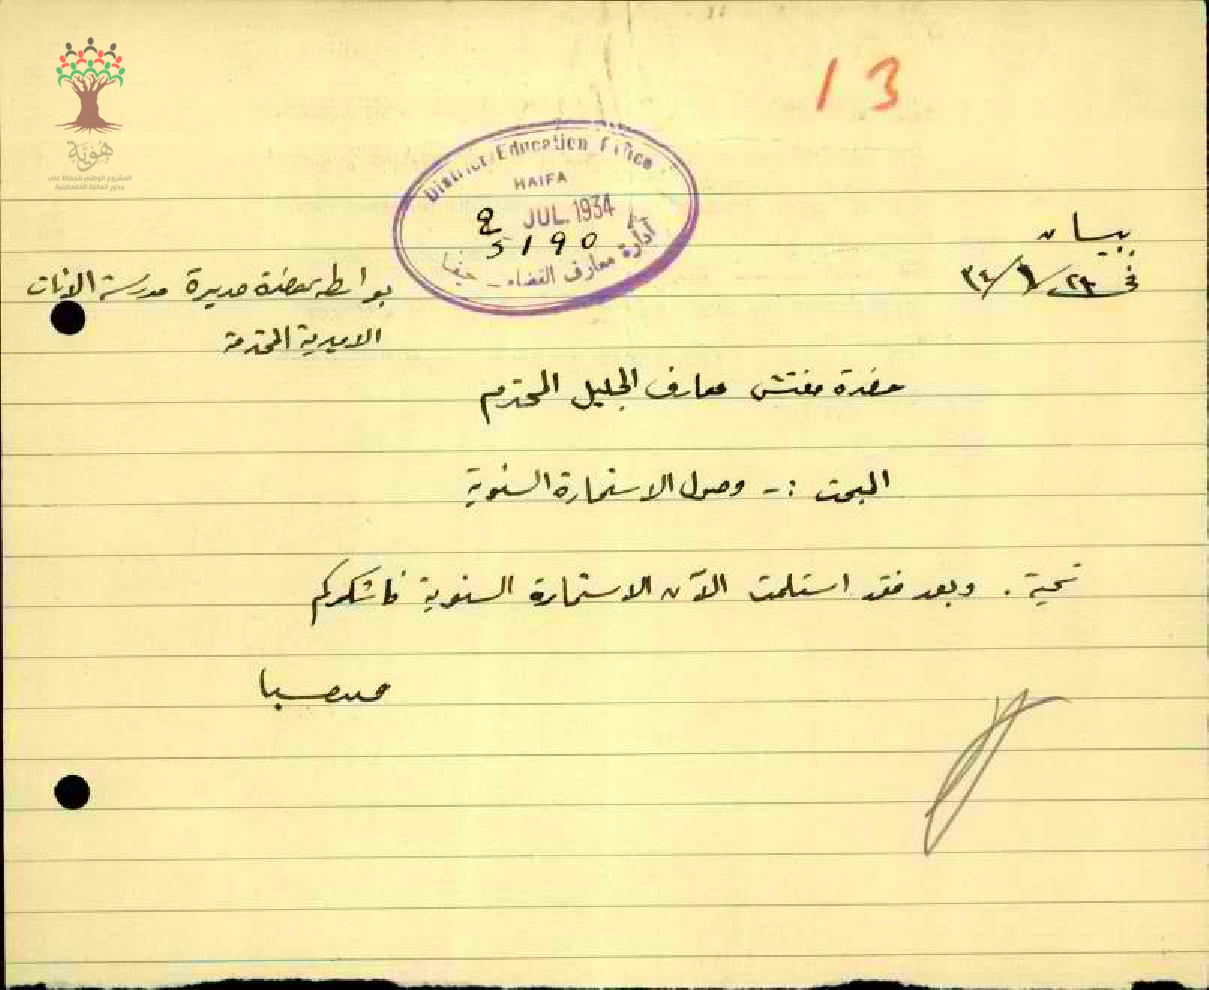 هوية
المشروع الوطني للحفاظ على
جذور العائلة الفلسطينية
13
District Education Office
HAIFA
2 JUL 1934
5190
إدارة معارف القضاء - حيفا
بيسان
في ٢٩/٦/٣٤
بواسطة حضرة مديرة مدرسة الاناث
الاميرية المحترمة
حضرة مفتش معارف الجليل المحترم
البحث :- وصول الاستمارة السنوية
تحية . وبعد فقد استلمت الآن الاستمارة السنوية فاشكركم